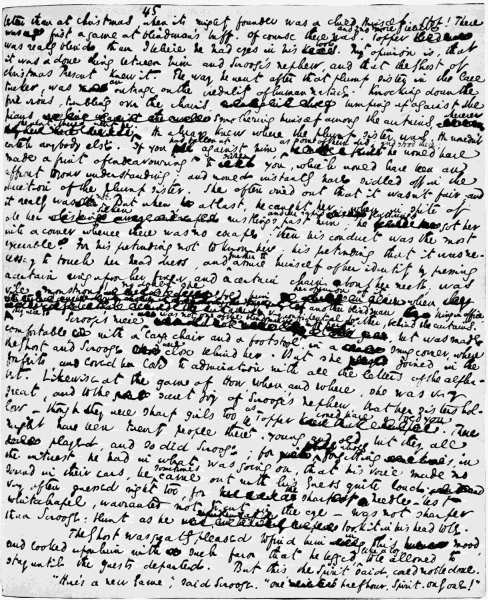 45
better than at Christmas, when its mighty founder was a child himself. Stop! There
was first a game at blindman's buff. Of course there was. And I no more believe Topper
was really blind than I believe he had eyes in his boots. My opinion is, that
it was a done thing between him and Scrooge's nephew, and that the Ghost of
Christmas Present knew it. The way he went after that plump sister in the lace
tucker, was an outrage on the credulity of human nature. Knocking down the
fire irons, tumbling over the chairs, bumping up against the
piano, smothering himself among the curtains, wherever
she went there went he. He always knew where the plump sister was. He wouldn't
catch anybody else. If you had fallen up against him as some of them did, and stood there, he would have
made a feint of endeavouring to seize you, which would have been an
affront to your understanding; and would instantly have sidled off in the
direction of the plump sister. She often cried out that it wasn't fair; and
it really was not. But when at last, he caught her; when in spite of
all her silken rustlings, and her rapid flutterings past him, he got her
into a corner whence there was no escape; then his conduct was the most
execrable. For his pretending not to know her; his pretending that it was ne-
cessary to touch her head dress, and further to assure himself of her identity by pressing
a certain ring upon her finger, and a certain chain about her neck; was
vile, monstrous! No doubt she told him her opinion of it, when
another blindman being in office,
they were so very confidential together, behind the curtains.
Scrooge's niece was not one of the blindman's buff party, but was made
comfortable with a large chair and a footstool, in a snug corner, where
the Ghost and Scrooge were close behind her. But she joined in the
forfeits, and loved her love to admiration with all the letters of the alpha-
bet. Likewise at the game of How When and Where, she was very
great, and to the secret joy of Scrooge's nephew, beat her sisters hol-
low - though they were sharp girls too, as Topper could have told you. There
might have been twenty people there, young and old, but they all
played, and so did Scrooge; for, forgetting, in
the interest he had in what was going on, that his voice made no
sound in their ears, he sometimes came out with his guess quite loud,
very often guessed right too; for the sharpest needle, best
whitechapel, warranted not to cut in the eye - was not sharper
than Scrooge: blunt as he took it in his head to be.
The Ghost was greatly pleased to find him in this mood
and looked upon him with such favor that he begged like a boy to be allowed to
stay until the guests departed. But this the Spirit said could not be done.
"Here's a new game", said Scrooge. "One half hour, Spirit, only one!"